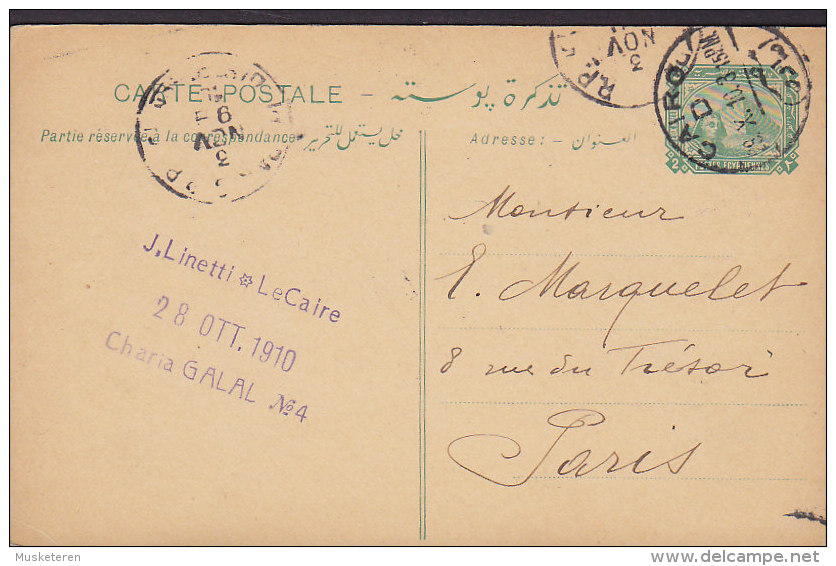 CARTE POSTALE – تذكرة بوسته
Partie réservée à la correspondance محل يستعمل للتحرير
Adresse: العنوان
NOV
3
R.P.
CAIRO
D
POSTES EGYPTIENNES
2
NOV
3
J. Linetti Le Caire
28 OTT. 1910
Charia GALAL No 4
Monsieur
E. Marquelet
8 rue du Trésor
Paris
Musketeren
delcampe.net